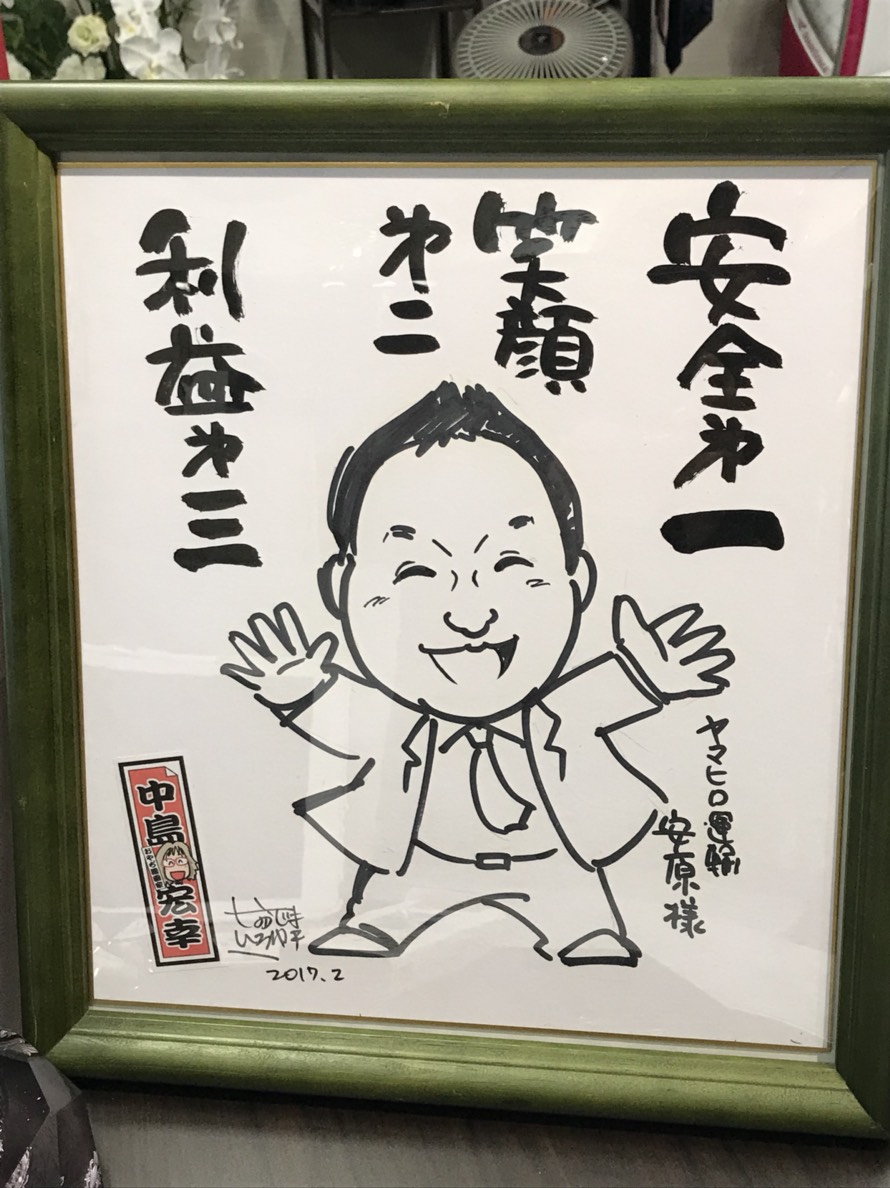 安全第一
笑顔
第二
利益第三
ヤマヒロ運輸
安原様
中島宏幸
2017.2